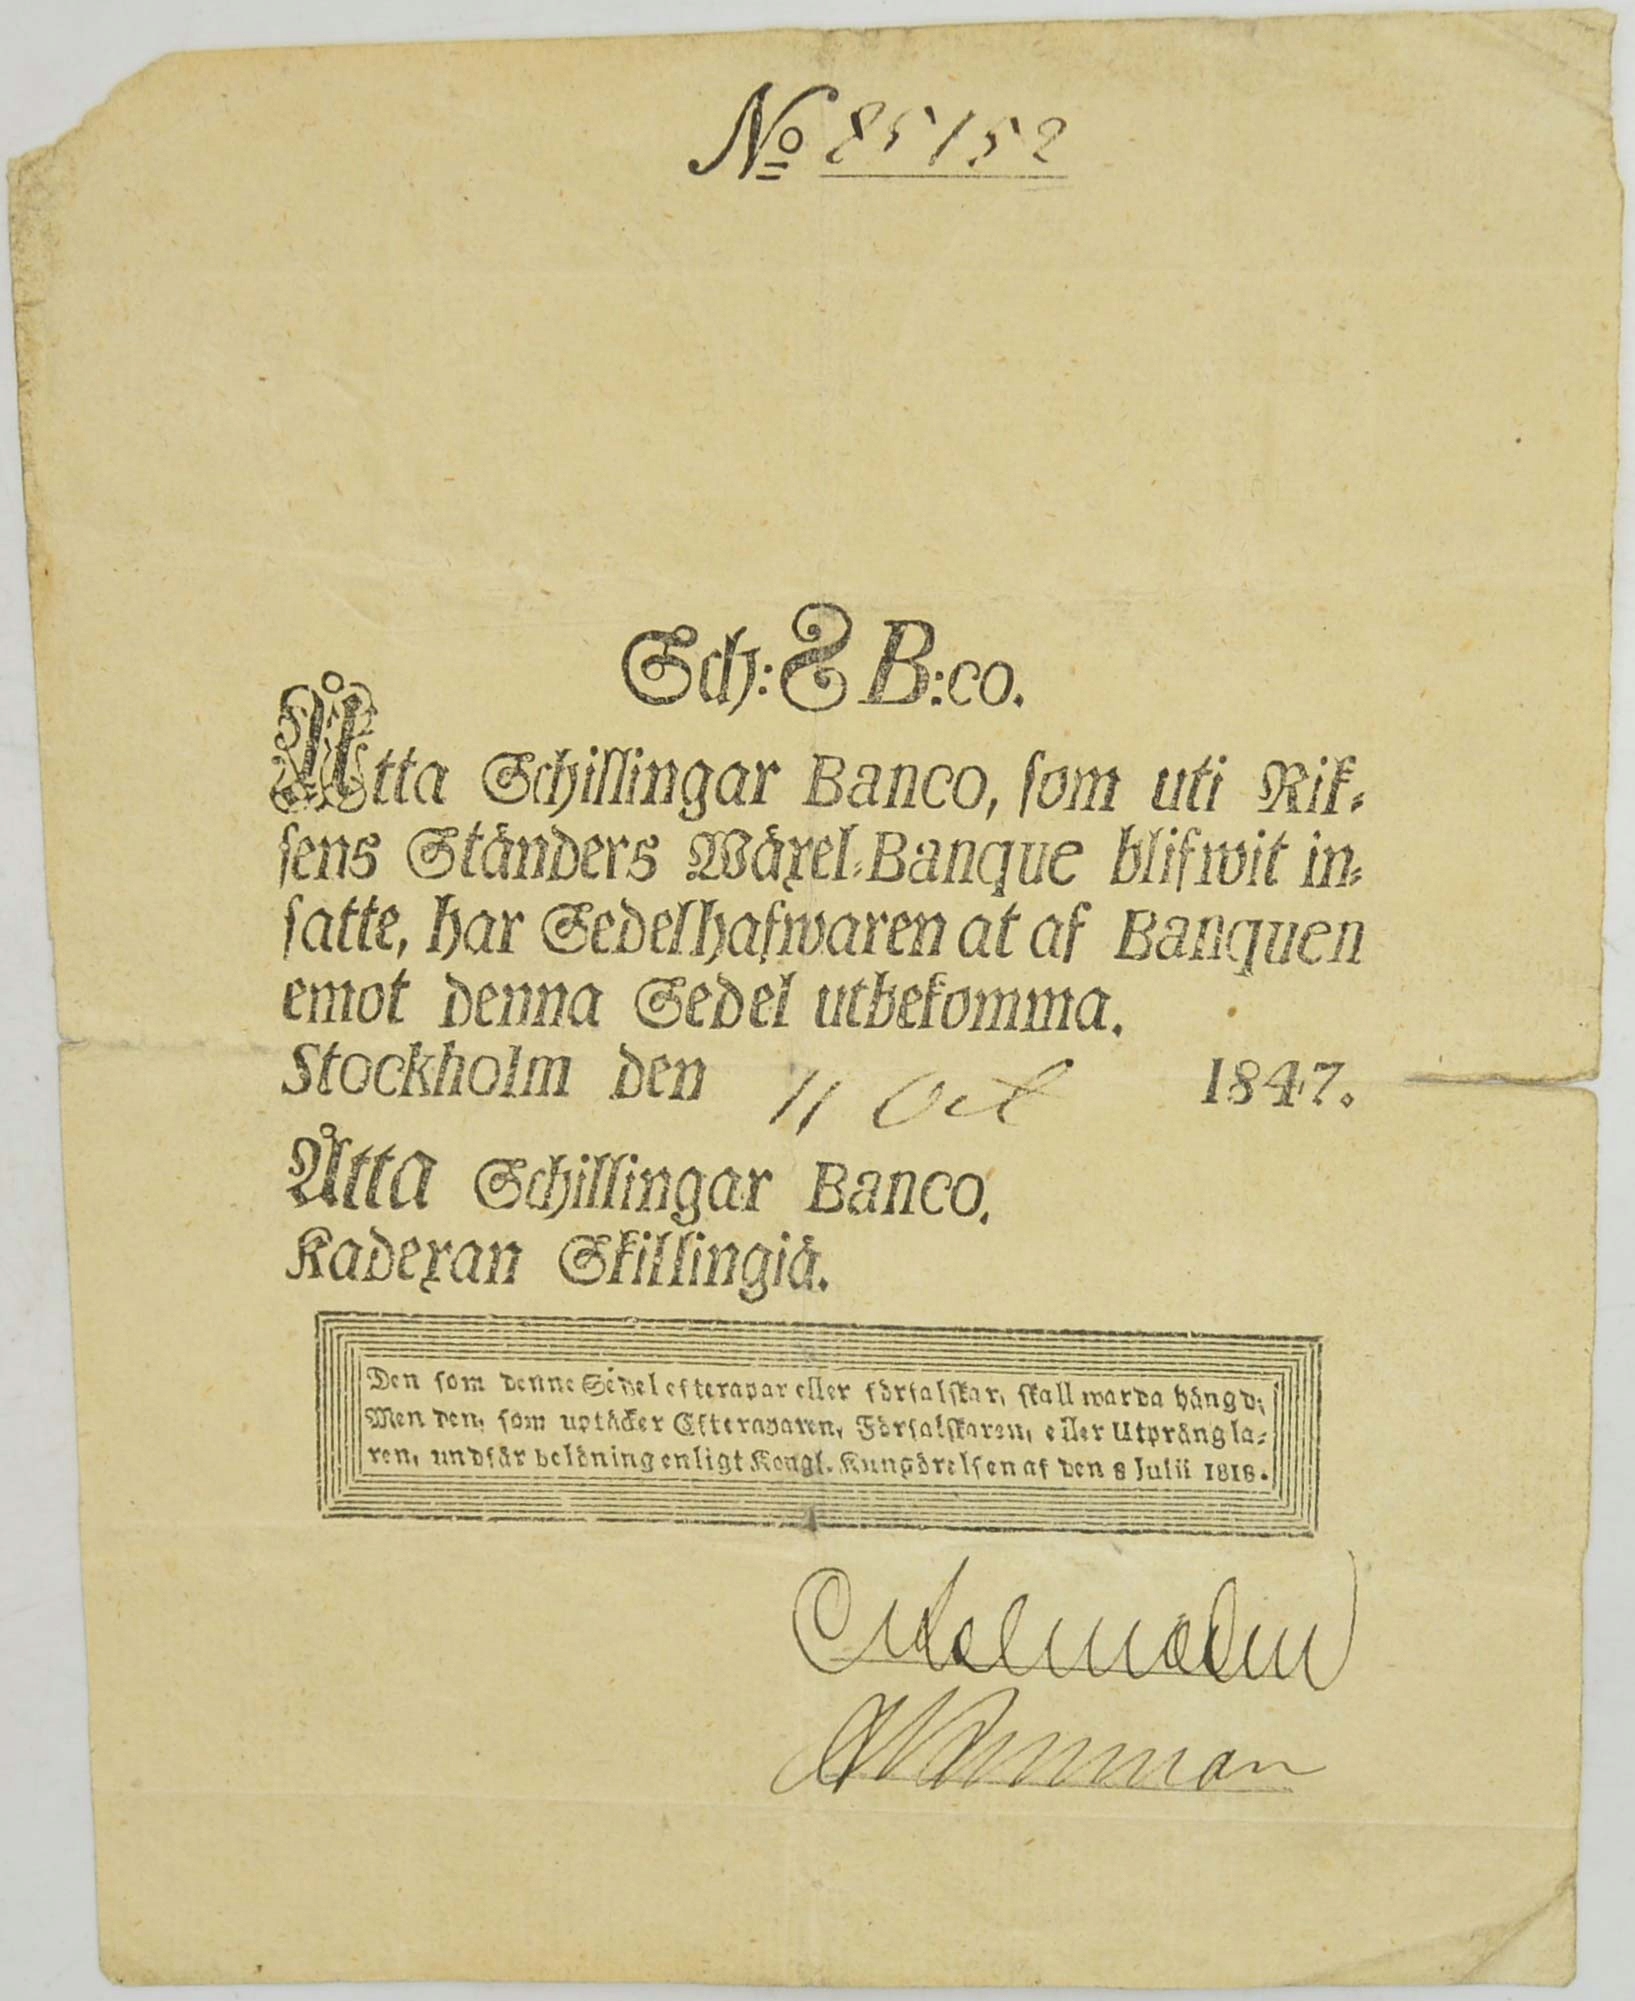 No 85152
Sch: 8 B:co.
Åtta Schillingar Banco, som uti Rik-
sens Ständers Wäxel-Banque blifwit in-
satte, har Sedelhafwaren at af Banquen
emot denna Sedel utbekomma.
Stockholm den 11 Oct 1847.
Åtta Schillingar Banco.
Kadexan Skillingiä.
Den som denne Sedel efterapar eller förfalskar, skall warda hängd;
Men den, som uptäcker Efteraparen, Förfalskaren, eller Utprångla-
ren, undfår belöning enligt Kongl. Kungörelsen af den 8 Julii 1818.